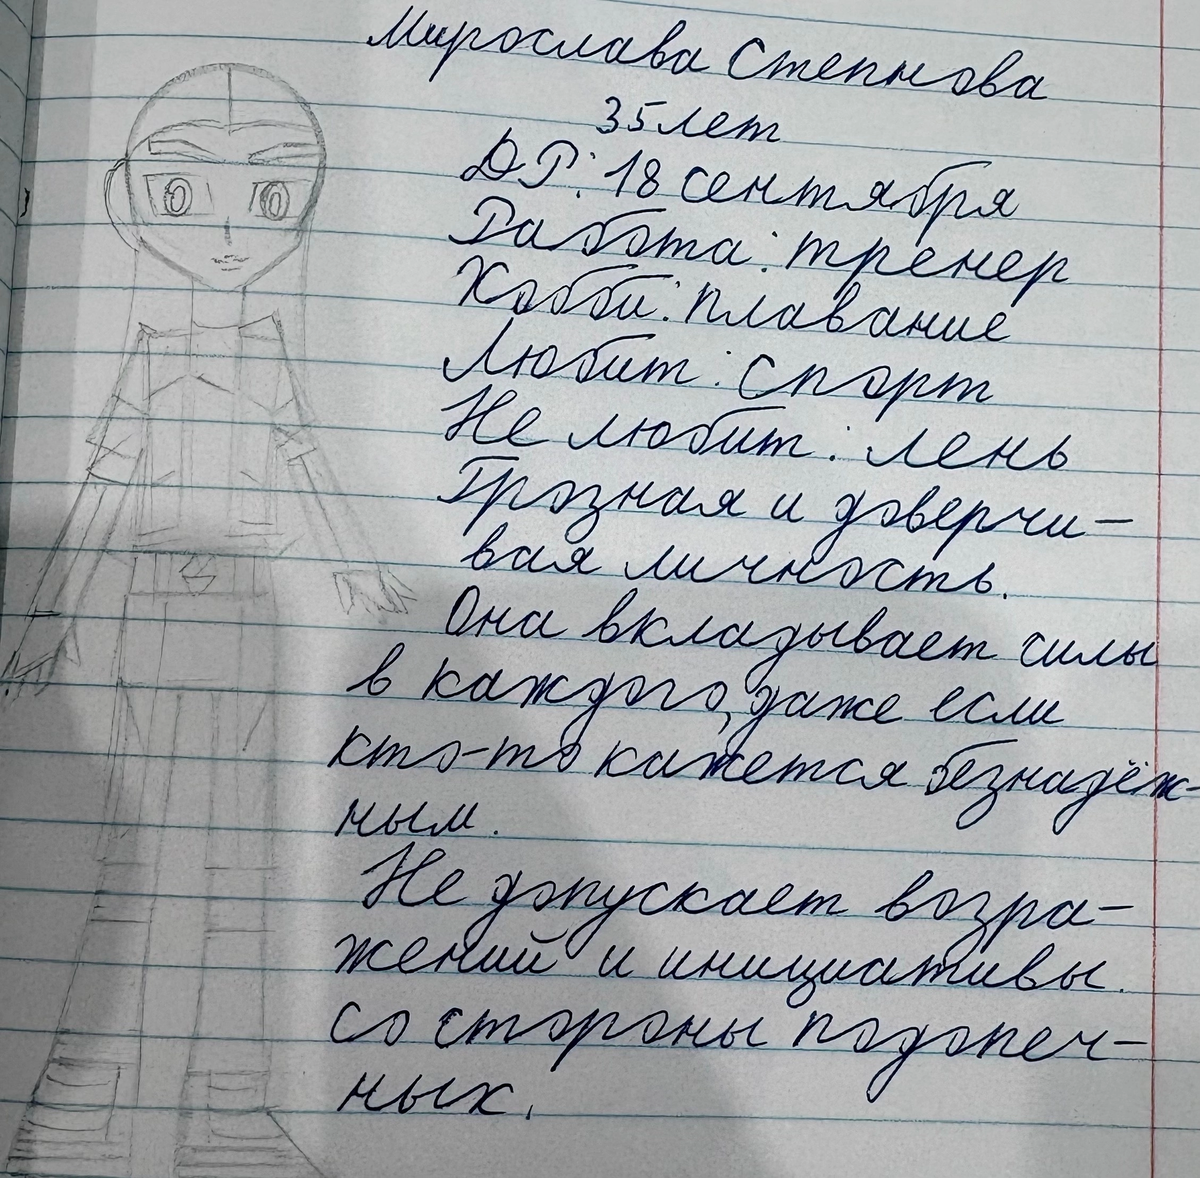 Мирослава Степнова
35 лет
ДР: 18 сентября
Работа: тренер
Хобби: плавание
Любит: спорт
Не любит: лень
Грозная и доверчи-
вая личность.
Она вкладывает силы
в каждого, даже если
кто-то кажется безнадёж-
ным.
Не допускает возра-
жений и инициативы.
со стороны подопеч-
ных.